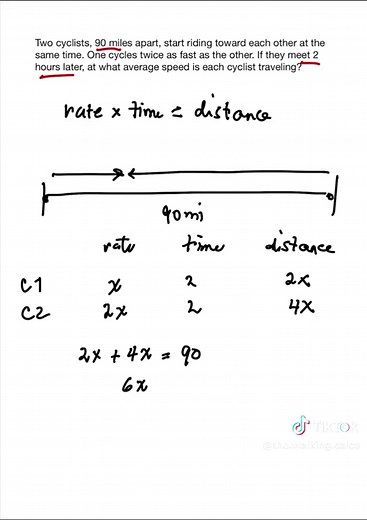 Two cyclists, 90 miles apart, start riding toward each other at the
same time. One cycles twice as fast as the other. If they meet 2
hours later, at what average speed is each cyclist traveling?
rate x time = distance
90mi
rate time distance
C1 x 2 2x
C2 2x 2 4x
2x + 4x = 90
6x